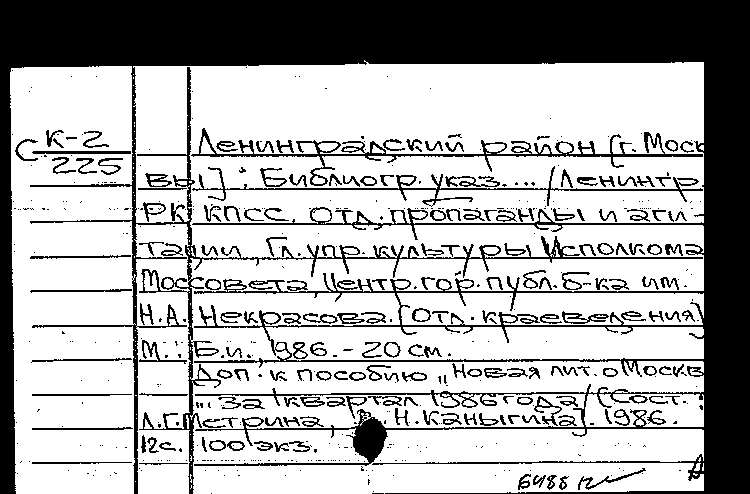 С К-2
225
Ленинградский район [г. Моск
вы] : Библиогр. указ... / Ленингр.
РК КПСС, Отд. пропаганды и аги-
тации, Гл. упр. культуры Исполкома
Моссовета, Центр. гор. публ. б-ка им.
Н.А. Некрасова. [Отд. краеведения]
М. : Б.и., 1986. - 20 см.
Доп. к пособию „Новая лит. о Москв
... за I квартал 1986 года / [Сост. :
Л.Г. Метрина, Н. Каныгина]. 1986.
12с. 100 экз.